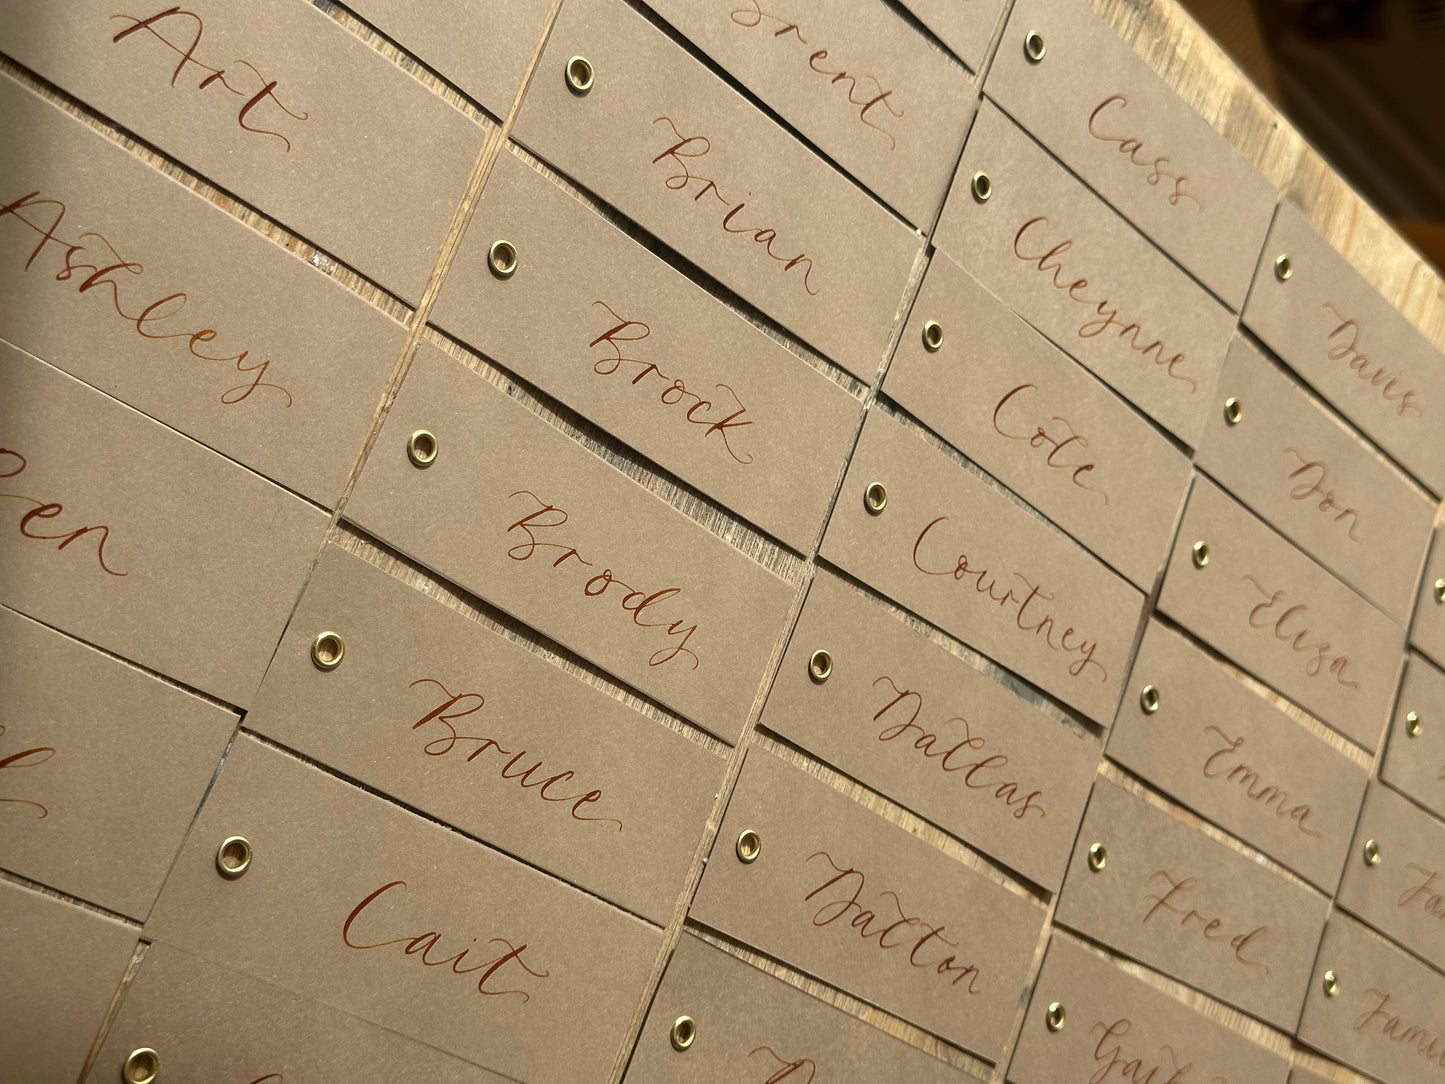 Art
Ashley
Brian
Brock
Brody
Bruce
Cait
Cass
Cheynne
Cole
Courtney
Dallas
Dalton
Davis
Don
Eliza
Emma
Fred